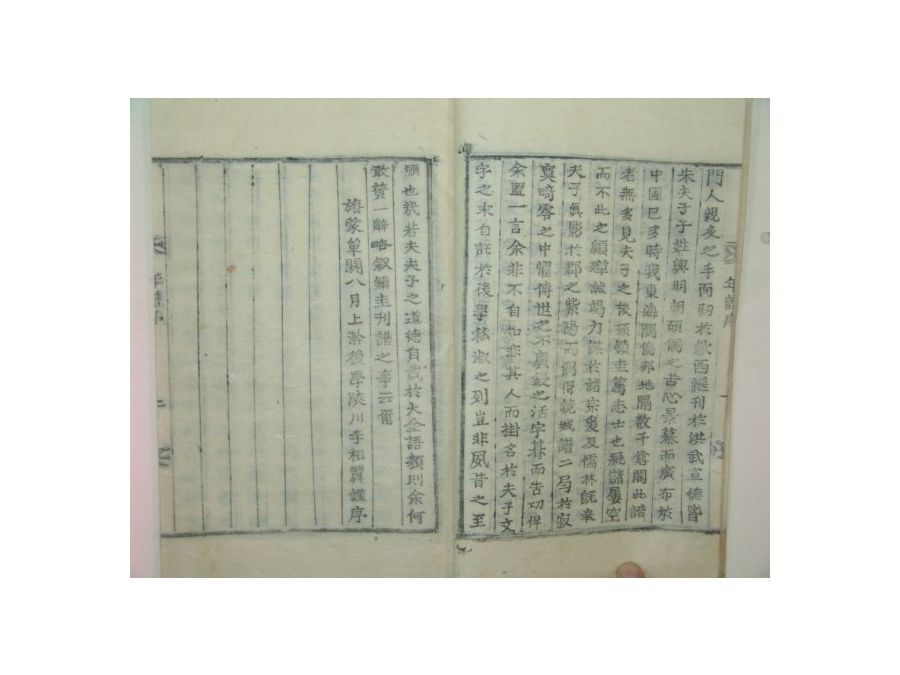 門人親炙之手而刱於歙西繼刊於洪武宣德皆
朱夫子子姓與明朝碩儒之苦心景慕而廣布於
中國已多時我東海隅偏邦地隔數千尊閣此譜
者無多見夫子之後孫錫圭篤志士也甁儲屢空
而不此之顧殫誠竭力謀於諸宗爰及儒林旣奉
夫子眞影於郡之紫陽而偶得 城譜二局於寂
寞畸零之中懼傳世之不廣鋟之活字朞而告功俾
余置一言余非不自知非其人而掛名於夫子文
字之末自託於後學私淑之列豈非夙昔之至
願也哉若夫夫子之道德自載於大全語類則余何
敢贊一辭略叙錫圭刊譜之事云爾
旃蒙單閼八月上澣後學陜川李相翼謹序
年譜序
年譜序
二